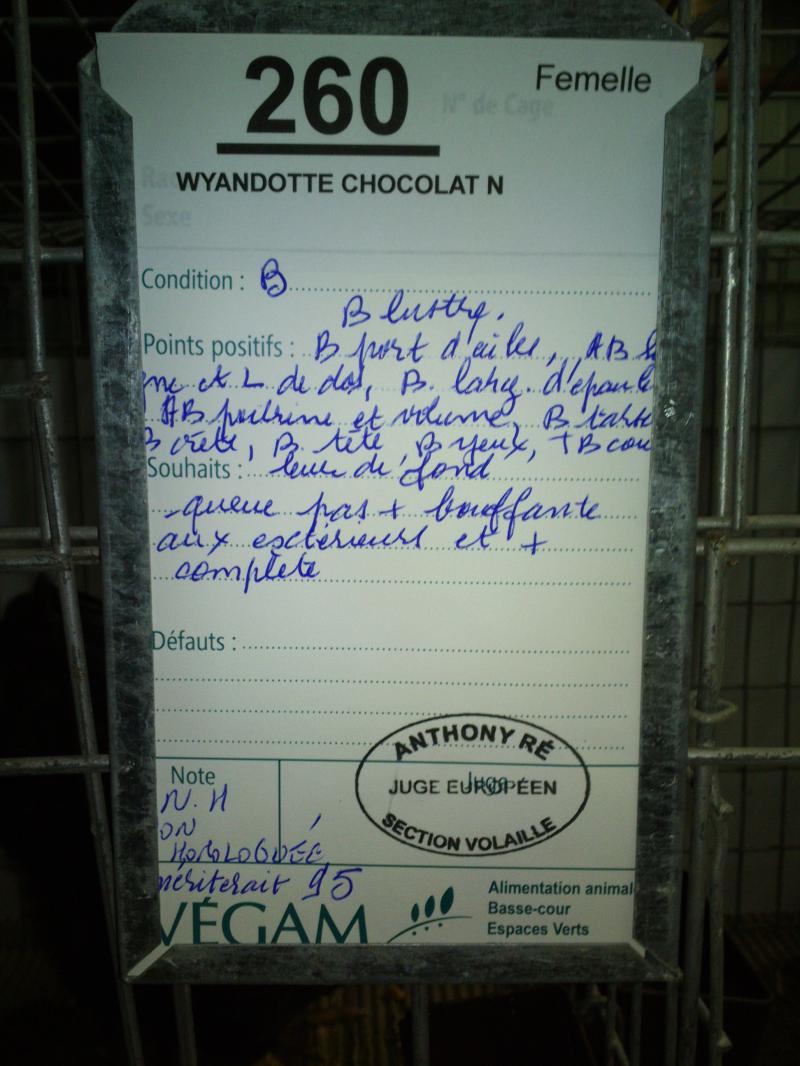 260
Femelle
N° de Cage
WYANDOTTE CHOCOLAT N
Sexe
Condition : B
B lustre.
Points positifs : B port d'ailes, AB li
gne et L de dos, B. larg. d'épaule
AB poitrine et volume, B tarse
B crête, B tête, B yeux, TB cou
Souhaits : leur de fond
- queue pas + bouffante
aux extérieurs et +
complète
Défauts :
ANTHONY RÉ
JUGE EUROPÉEN
SECTION VOLAILLE
Note
Juge
N.H
ON
HOMOLOGUÉE
mériterait 95
VÉGAM
Alimentation animal
Basse-cour
Espaces Verts